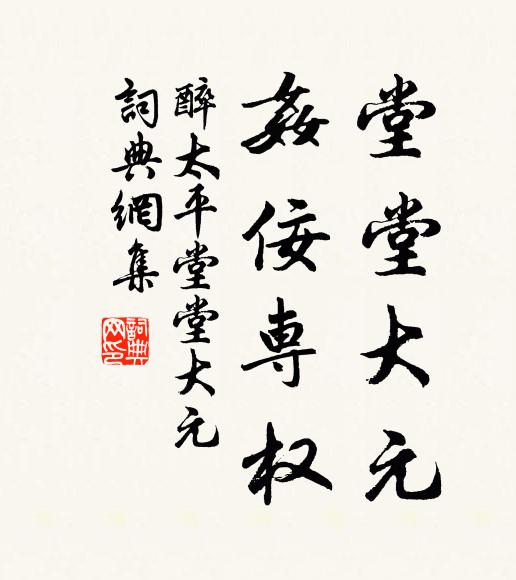 堂堂大元
姦佞専权
醉太平堂堂大元
詞典網集
詞典网印